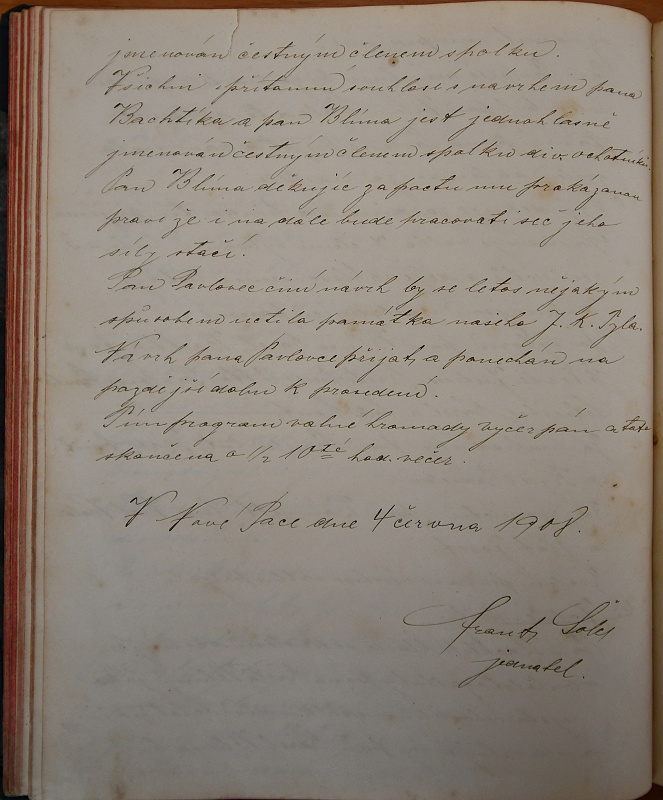 jmenován čestným členem spolku.
Všichni přítomní souhlasí s návrhem pana
Bachtíka a pan Blíma jest jednohlasně
jmenován čestným členem spolku div. ochotníků.
Pan Blíma děkujíc za poctu mu prokázanou
praví že i na dále bude pracovati seč jeho
síly stačí.
Pan Pavlovec činí návrh by se letos nějakým
způsobem uctila památka našeho J. K. Tyla.
Návrh pana Pavlovce přijat, a ponechán na
pozdější dobu k provedení.
Tím program valné hromady vyčerpán a tato
skončena o ½ 10té hod. večer.
V Nové Pace dne 4 června 1908.
Frant.
jednatel.